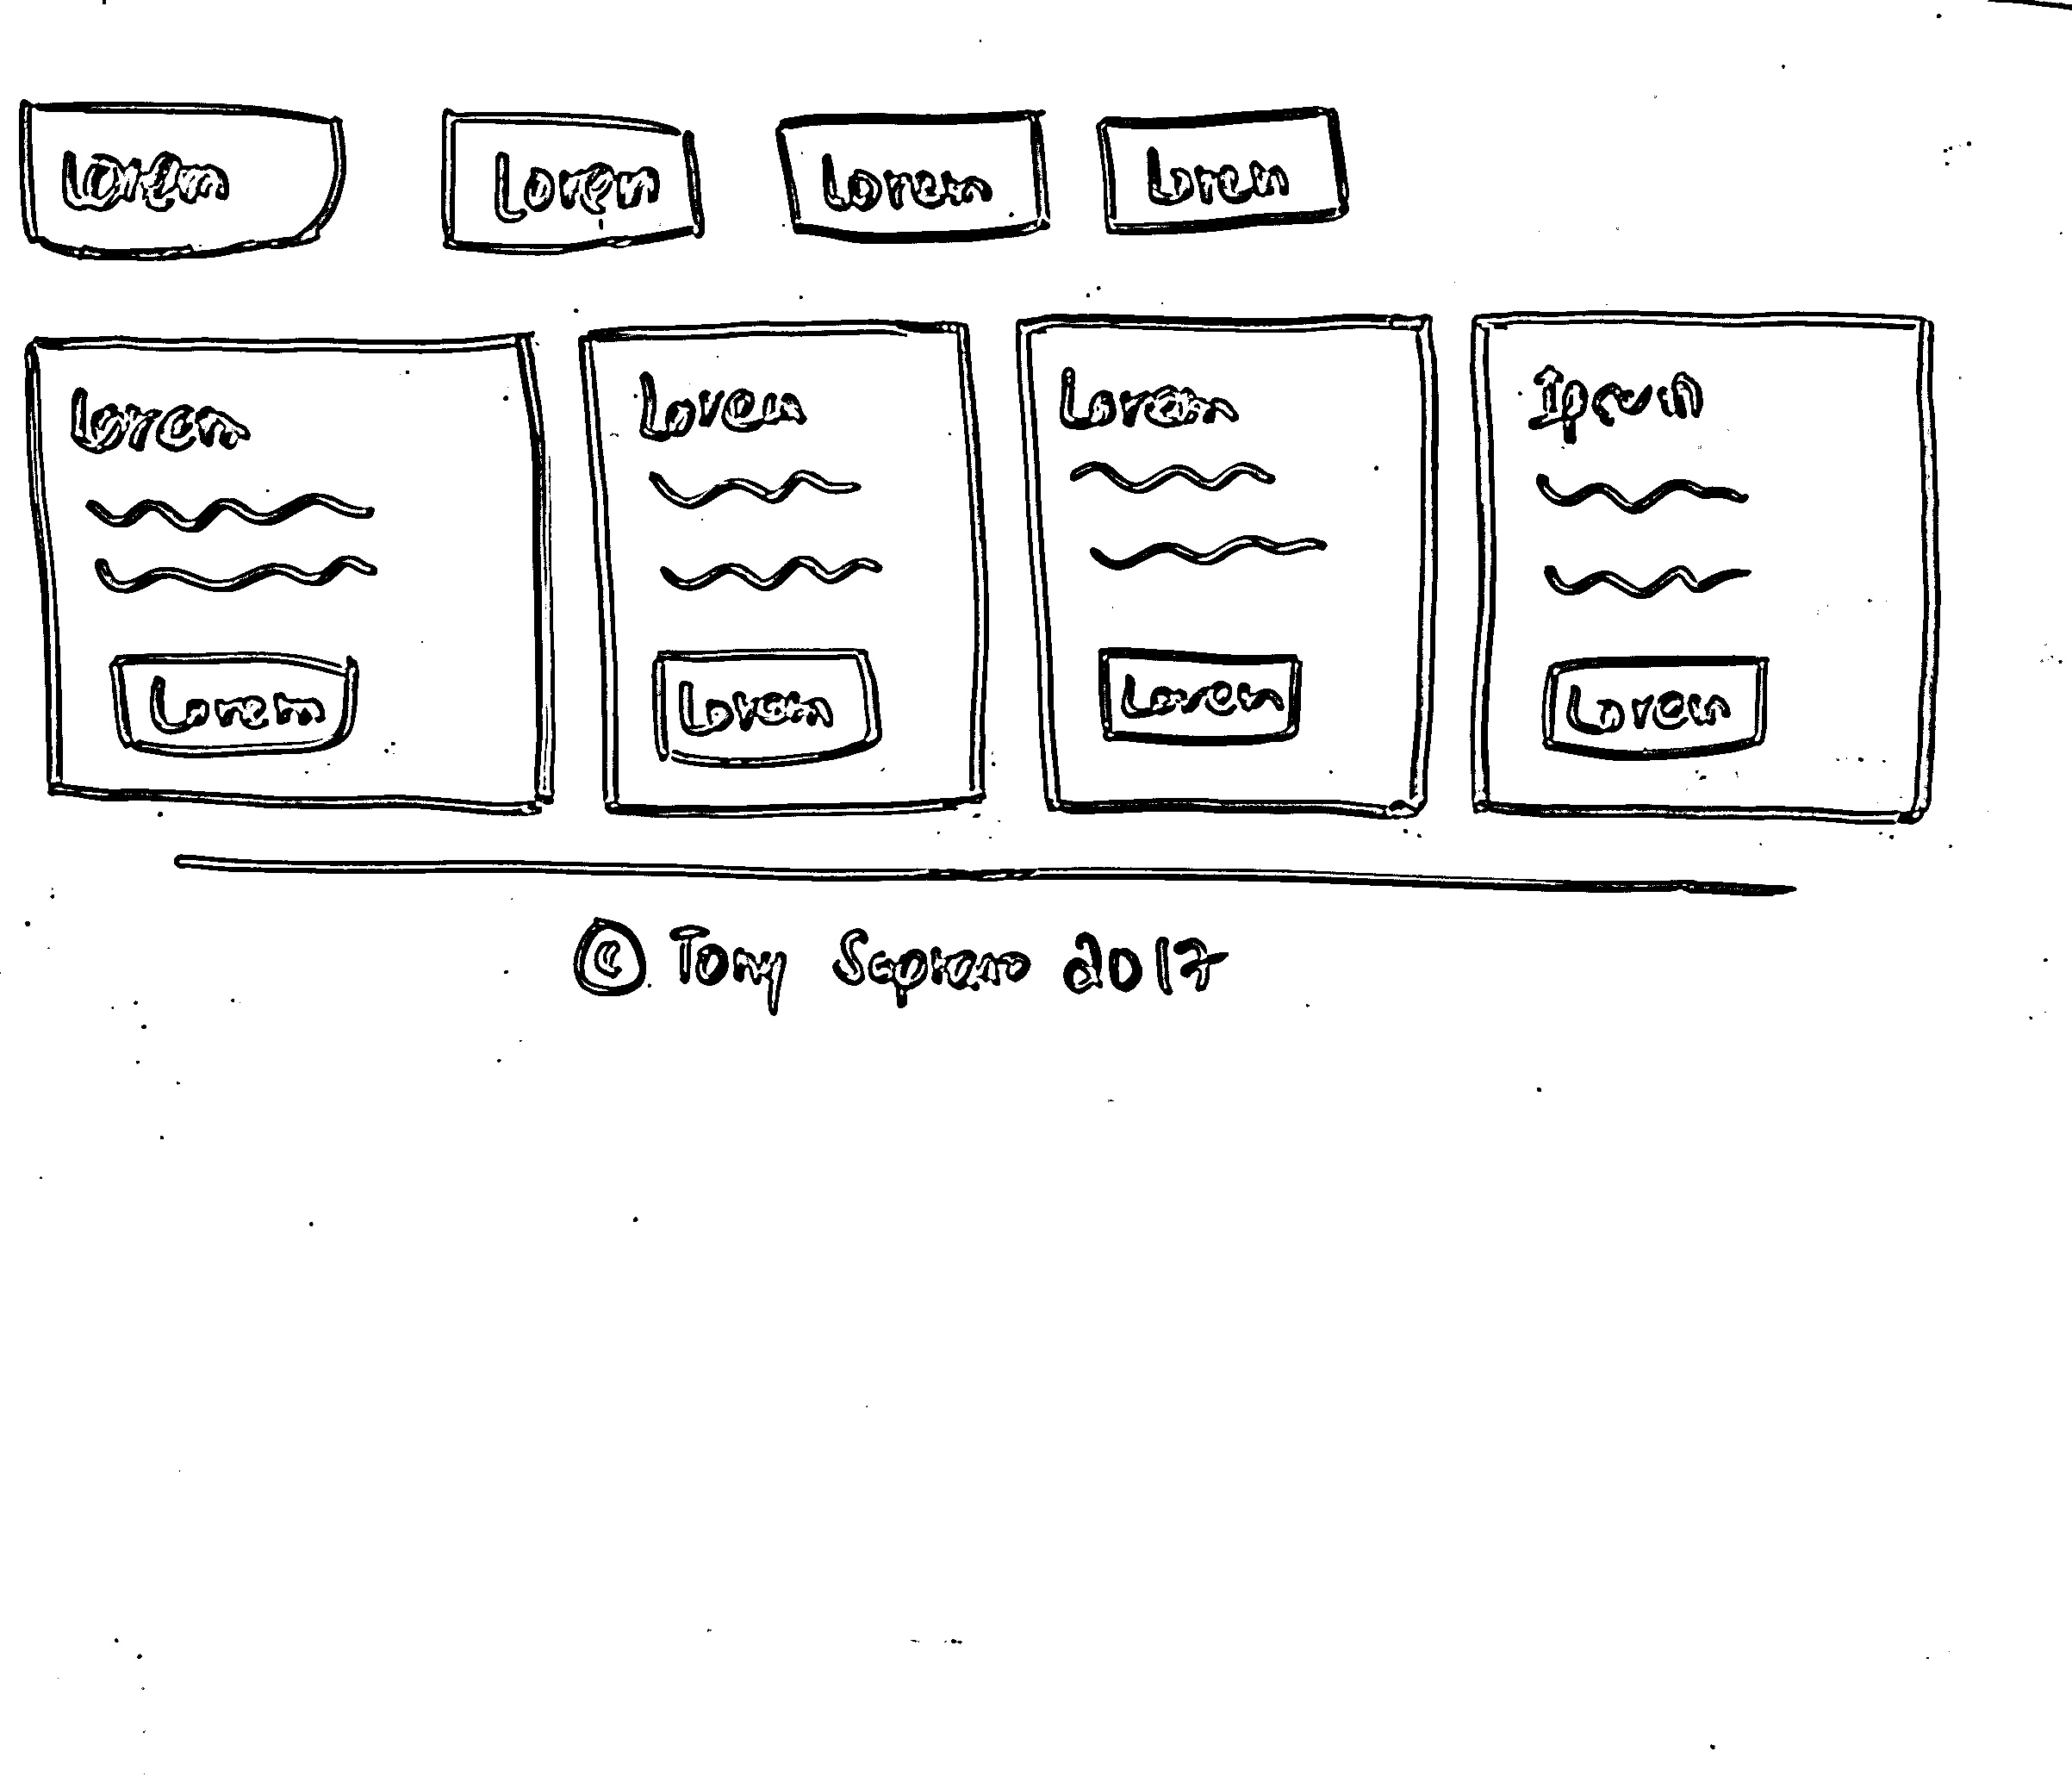 Lorem Lorem Lorem Lorem
Lorem Lorem Lorem Ipsum
Lorem Lorem Lorem Lorem
© Tony Soprano 2017